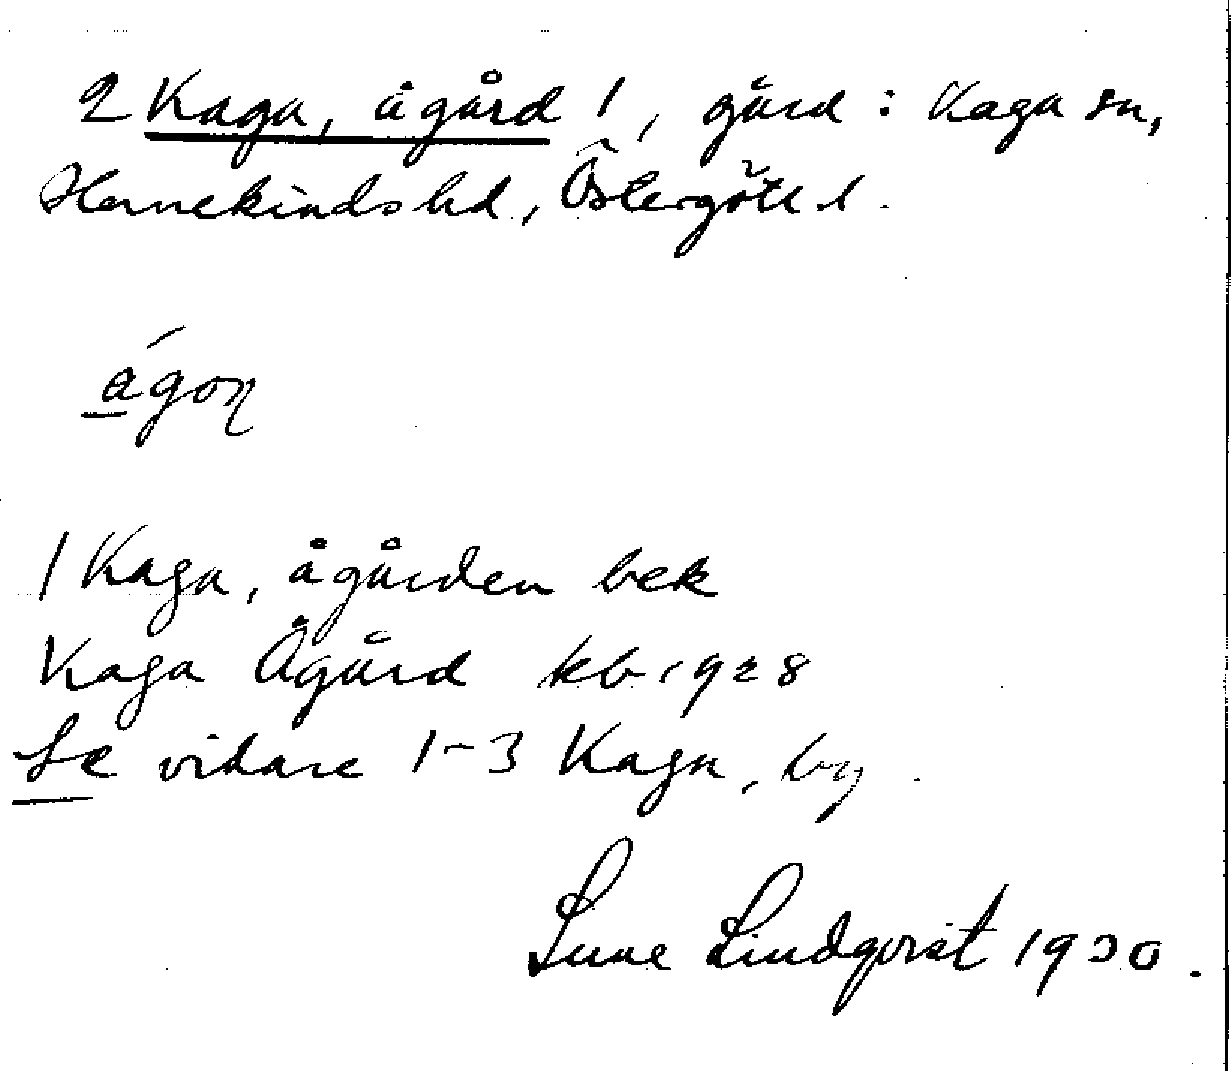 2 Kaga, ågård 1, gård : Kaga sn,
Hanekinds hd, Östergötl. l.
ágoṇ
1 Kaga, ågården bek
Kaga Ågård kb 1928
Se vidare 1-3 Kaga, by.
Sune Lindqvist 1930.